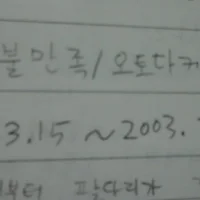 불만족/오토다케
3.15 ~ 2003.
부터 팔다리가